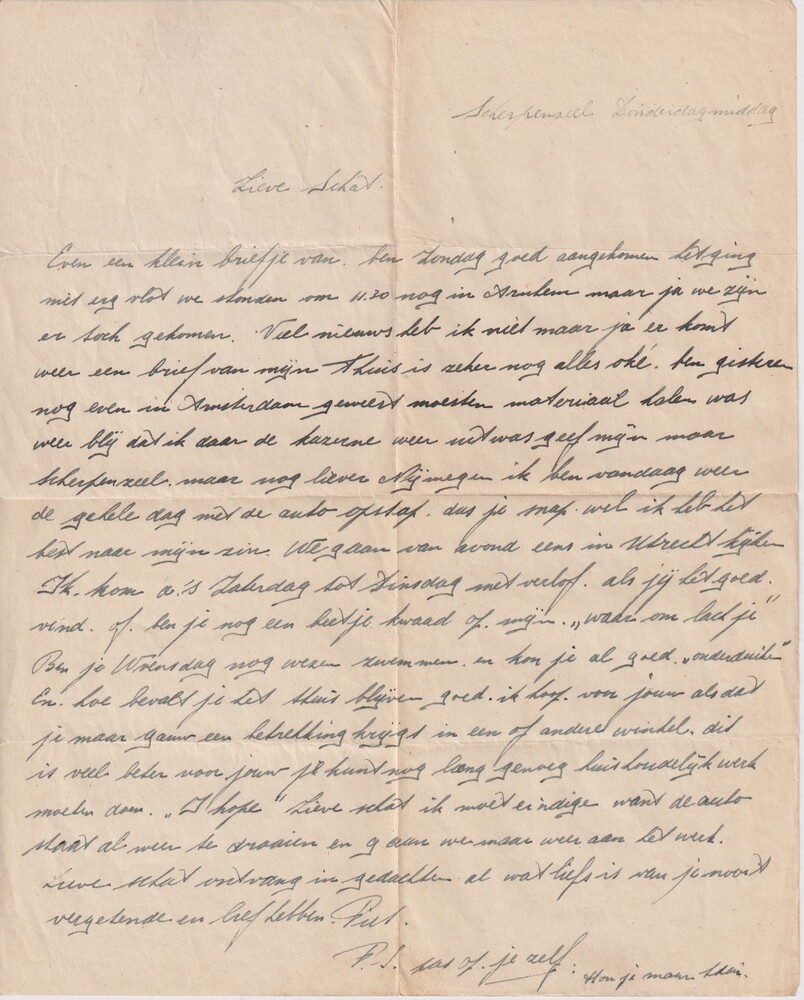 Scherpenzeel Donderdagmiddag
Lieve Schat.
Even een klein briefje van. ben Zondag goed aangekomen het ging
niet erg vlot we stonden om 11.30 nog in Arnhem maar ja we zijn
er toch gekomen. Veel nieuws heb ik niet maar ja er komt
weer een brief van mijn thuis is zeker nog alles oké. ben gisteren
nog even in Amsterdam geweest moesten materiaal halen was
weer blij dat ik daar de kazerne weer uit was geef mijn maar
Scherpenzeel. maar nog liever Nijmegen ik ben vandaag weer
de gehele dag met de auto opstap. dus je snap. wel ik heb het
best naar mijn zin. We gaan van avond eens in Utrecht kijken
Ik. kom a.'s Zaterdag tot Dinsdag met verlof. als jij het goed.
vind. of. ben je nog een beetje kwaad op. mijn. „waar om lach je"
Ben je Woensdag nog wezen zwemmen. en kon je al goed. „onderduiken"
En. hoe bevalt je het thuis blijven goed. ik hoop. voor jouw als dat
je maar gauw een betrekking krijgt in een of andere winkel. dit
is veel beter voor jouw je kunt nog lang genoeg huishoudelijk werk
moeten doen. „I hope" Lieve schat ik moet eindige want de auto
staat al weer te draaien en gaan we maar weer aan het werk.
Lieve schat ontvang in gedachten al wat liefs is van je nooit
vergetende en liefhebben. Piet.
P.S. pas op. je zelf. Hou je maar